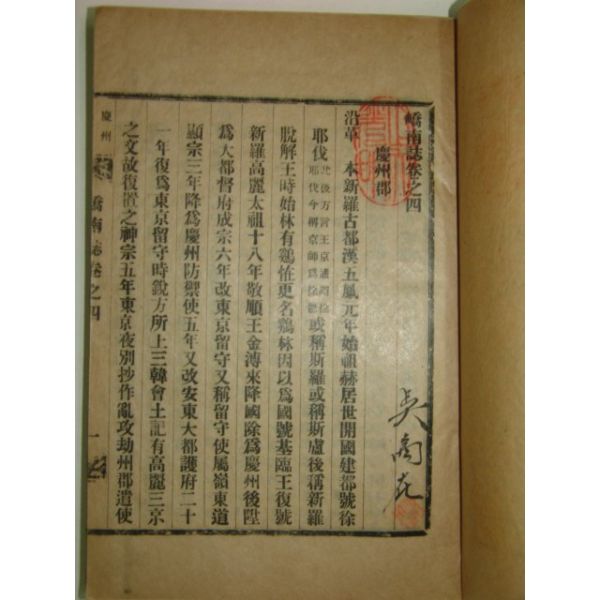 嶠南誌卷之四
慶州郡
沿革 本新羅古都漢五鳳元年始祖赫居世開國建都號徐
耶伐 或稱斯羅或稱斯盧後稱新羅
脫解王時始林有鷄恠更名鷄林因以爲國號基臨王復號
新羅高麗太祖十八年敬順王金溥來降國除爲慶州後陞
爲大都督府成宗六年改東京留守又稱留守使屬嶺東道
顯宗三年降爲慶州防禦使五年又改安東大都護府二十
一年復爲東京留守時銳方所上三韓會土記有高麗三京
之文故復置之神宗五年東京夜別抄作亂攻劫州郡遣使
慶州
嶠南誌卷之四
一